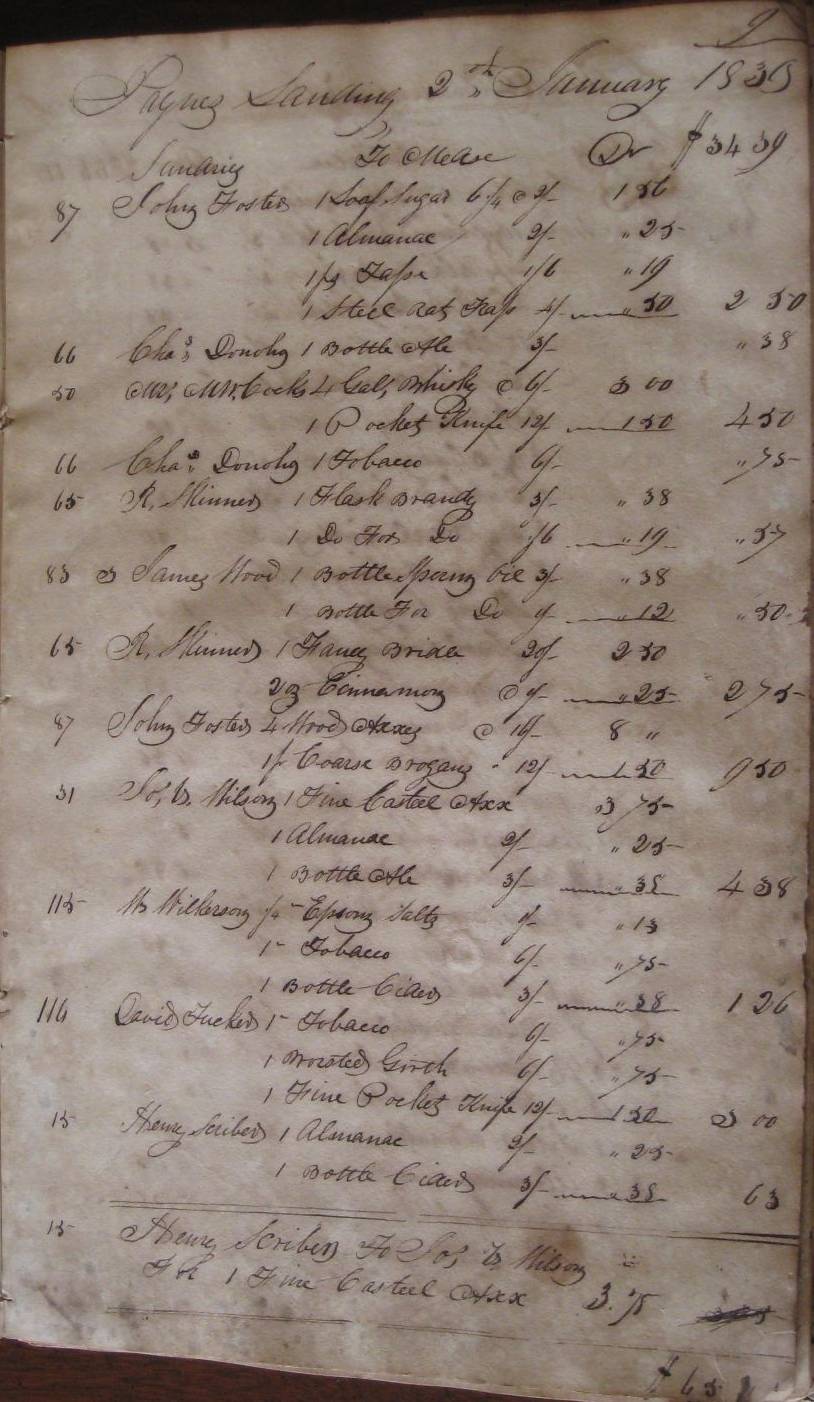 9
Paynes Landing 2nd January 1838
Sundries To Mdse Dr $34 39
87 John Foster 1 Loaf Sugar 6¼ @ 2/- 1 56
1 Almanac 2/- " 25
Tape 1/6 " 19
1 Steel Rat Trap 4/- " 50 2 50
66 Chas Donohy 1 Bottle Ale 3/- " 38
50 Cocks 4 Gals Whisky @ 6/- 3 00
1 Pocket Knife 12/- 1 50 4 50
66 Chas Donohy 1 Tobacco 6/- " 75
65 R. Skinner 1 Flask Brandy 3/- " 38
1 Do For Do 1/6 " 19 " 57
83 James Wood 1 Bottle Sperm Oil 3/- " 38
1 Bottle For Do 1/- " 12 " 50
65 R. Skinner 1 Fancy Bridle 20/- 2 50
2 oz Cinnamon @ 1/- " 25 2 75
87 John Foster 4 Wood Axes @ 16/- 8 "
1 pr Coarse Brogans 12/- 1 50 9 50
31 Jos, B. Wilson 1 Fine Casteel Axx 3 75
1 Almanac 2/- " 25
1 Bottle Ale 3/- " 38 4 38
115 W Wilkerson ¼ Epsom Salts 1/- " 13
1 Tobacco 6/- " 75
1 Bottle Cider 3/- " 38 1 26
116 David Tucker 1 Tobacco 6/- " 75
1 Worsted Girth 6/- " 75
1 Fine Pocket Knife 12/- 1 50 3 00
15 Henry Scriber 1 Almanac 2/- " 25
1 Bottle Cider 3/- " 38 63
15 Henry Scriber To Jos, B Wilson
For 1 Fine Casteel Axx 3.75
$65